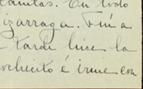 tanitas. En todo
izarraga. Fui a
tarde hice la
ochecito é irme con